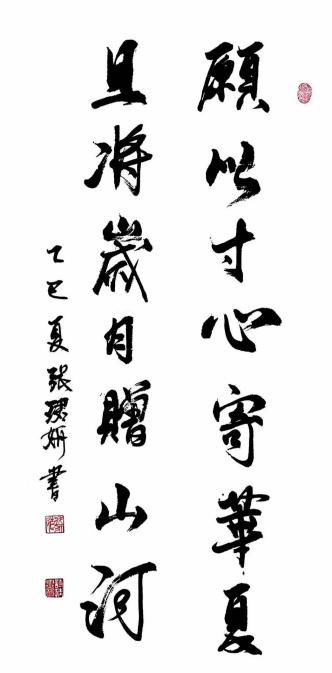 願以寸心寄華夏
且將歲月贈山河
乙巳夏張珺妍書